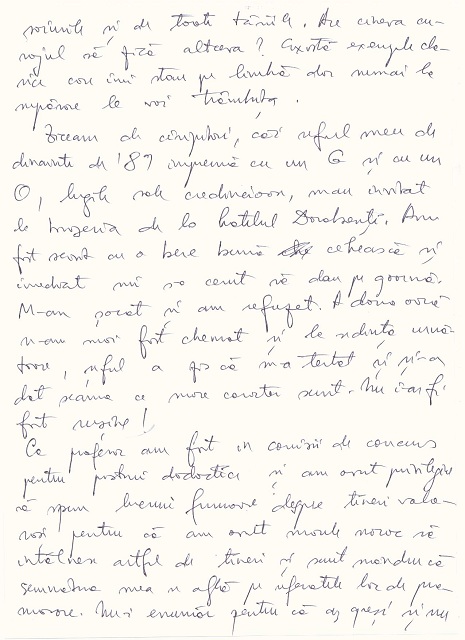 și de toate țările. Are cineva cu-
rajul să facă altceva? Există exemple cla-
sice care îmi stau pe limbă dar numai la
le voi trâmbița.
Ziceam de conjuri, căci șeful meu de
dinainte de '89 împreună cu un G și cu un
O, slugile sale credincioase, m-au invitat
la braseria de la hotelul Dorobanți. Am
fost servit cu o bere bună cehească și
imediat mi s-a cerut să dau pe goarnă.
M-am șocat și am refuzat. A doua oară
n-am mai fost chemat și la ședința urmă-
toare, șeful a zis că m-a testat și și-a
dat seama ce mare caracter sunt. Nu i-aș fi
fost rușine!
Ca profesor am fost în comisii de concurs
pentru posturi didactice și am avut privilegiu
să spun lucruri frumoase despre tineri valo-
roși pentru că am avut marele noroc să
întâlnesc astfel de tineri și sunt mândru că
semnătura mea se află pe referatele lor de pro-
movare. Nu-i enumăr pentru că aș greși și nu